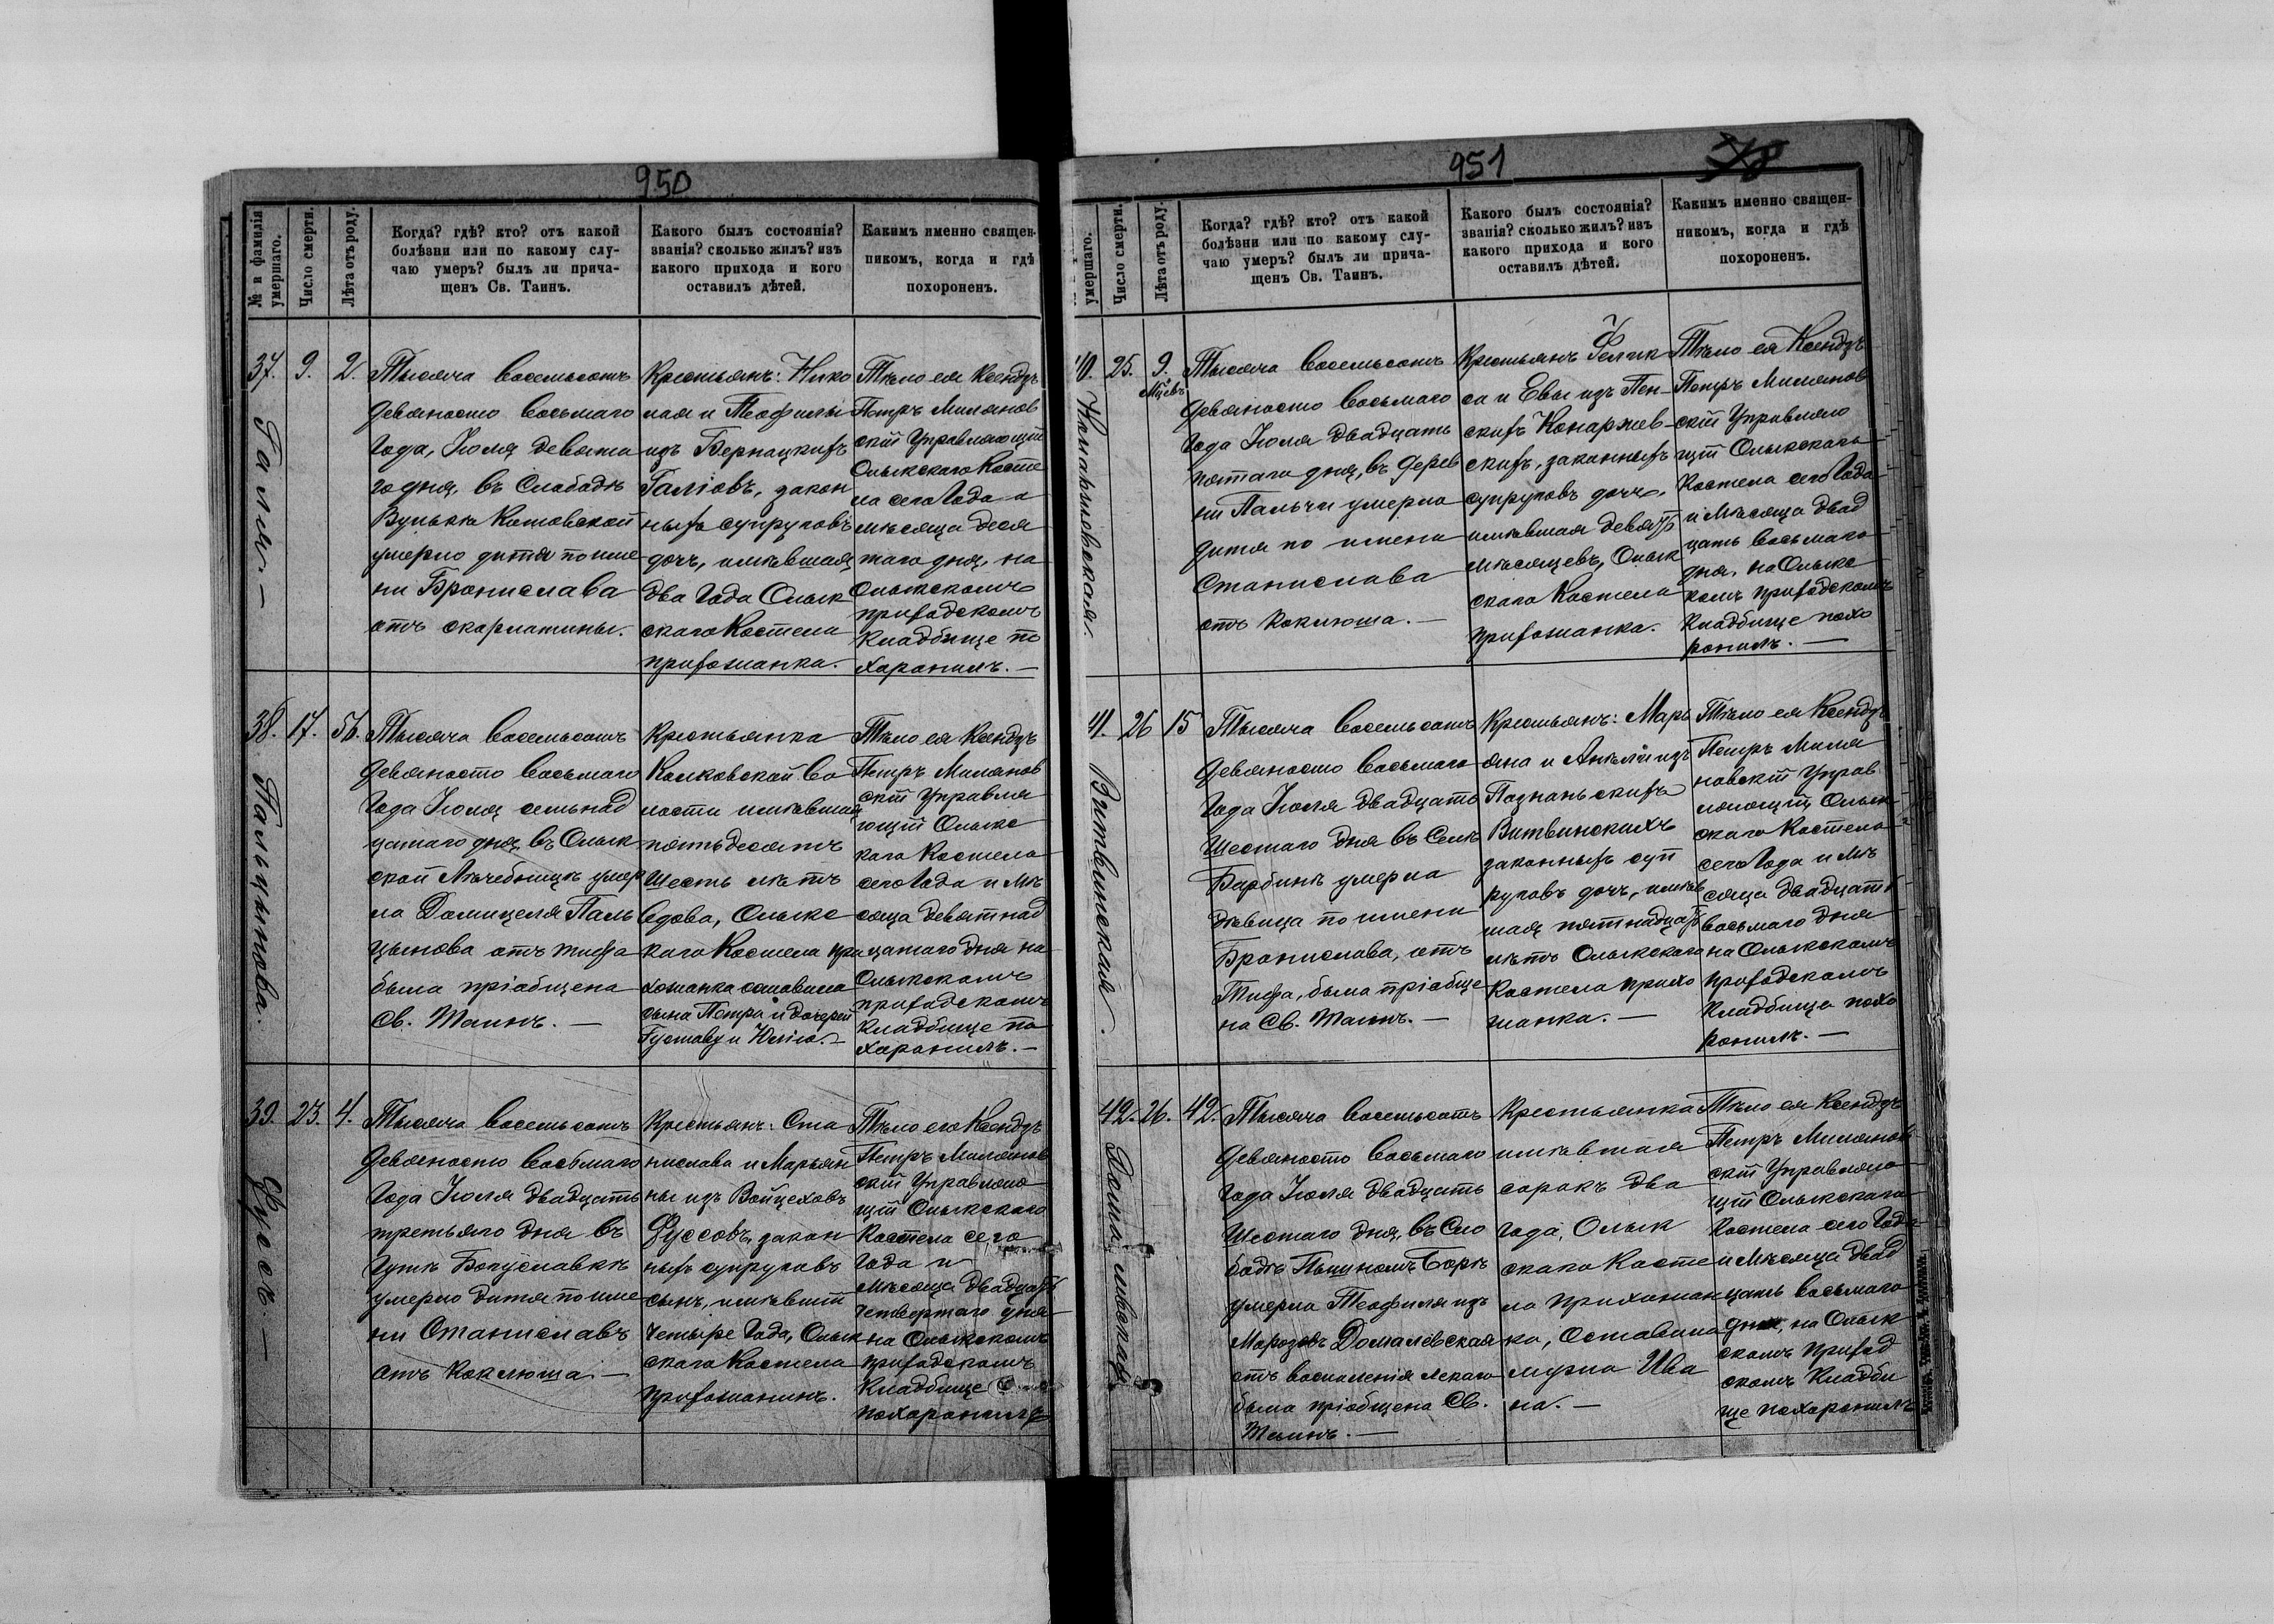 950
№ и фамилія
умершаго.
Число смерти.
Лѣта отъ роду.
Когда? гдѣ? кто? отъ какой
болѣзни или по какому слу-
чаю умеръ? былъ ли прича-
щенъ Св. Таинъ.
Какого былъ состоянія?
званія? сколько жилъ? изъ
какого прихода и кого
оставилъ дѣтей.
Какимъ именно священ-
никомъ, когда и гдѣ
похороненъ.
37.
9.
2.
Тысяча восемьсотъ
девяносто восьмаго
года, Іюля девята
го дня, въ Слободѣ
Вулькѣ Котовской
умерло дитя по име
ни Бронислава
отъ скарлатины.
Крестьянъ: Нико
лая и Теофилы
изъ Бернацкихъ
Галіовъ, закон
ныхъ супруговъ
дочь, имѣвшая
два года Олык
скаго Костела
прихожанка.
Тѣло ея Ксендзъ
Петръ Милянов
скій Управляющій
Олыкскаго Косте
ла сего года и
мѣсяца деся
таго дня, на
Олыкскомъ
приходскомъ
кладбище по
хоронилъ. —
38. Пальцынова.
17.
56.
Тысяча восемьсотъ
девяносто восьмаго
года Іюля семьнад
цатаго дня, въ Олык
ской Лѣчебницѣ умер
ла Домицеля Паль
цынова отъ тифа
была пріобщена
Св. Таинъ. —
Крестьянка
Колковской Во
лости имѣвшая
пятьдесятъ
шесть лѣтъ
вдова, Олыкс
каго Костела при
хожанка оставила
сына Петра и дочерей
Густаву и Юлію. —
Тѣло ея Ксендзъ
Петръ Милянов
скій Управля
ющій Олыкс
каго Костела
сего года и мѣ
сяца девятнад
цатаго дня на
Олыкскомъ
приходскомъ
кладбище по
хоронилъ. —
39. Фуссъ. —
23.
4.
Тысяча восемьсотъ
девяносто восьмаго
года Іюля двадцать
третьяго дня въ
Гутѣ Богуславкѣ
умерло дитя по име
ни Станиславъ
отъ коклюша. —
Крестьянъ: Ста
нислава и Марьян
ны изъ Войцеховъ
Фуссовъ, закон
ныхъ супруговъ
сынъ, имѣвшій
четыре года, Олык
скаго Костела
прихожанинъ.
Тѣло его Ксендзъ
Петръ Милянов
скій Управляю
щій Олыкскаго
Костела сего
года и
мѣсяца двадцать
четвертаго дня
на Олыкскомъ
приходскомъ
кладбище
похоронилъ
951
умершаго.
Число смерти.
Лѣта отъ роду.
Когда? гдѣ? кто? отъ какой
болѣзни или по какому слу-
чаю умеръ? былъ ли прича-
щенъ Св. Таинъ.
Какого былъ состоянія?
званія? сколько жилъ? изъ
какого прихода и кого
оставилъ дѣтей.
Какимъ именно священ-
никомъ, когда и гдѣ
похороненъ.
25.
9.
Мцевъ
Тысяча восемьсотъ
девяносто восьмаго
года Іюля двадцать
пятаго дня, въ дерев
ни Пальчи умерло
дитя по имени
Станислава
отъ коклюша. —
Крестьянъ Фелик
са и Евы изъ Пен-
скихъ Конаржев-
скихъ, законныхъ
супруговъ дочь,
имѣвшая девять
мѣсяцевъ, Олык
скаго Костела
прихожанка.
Тѣло ея Ксендзъ
Петръ Милянов
скій Управляю
щій Олыкскаго
Костела сего года
и мѣсяца двад
цать восьмаго
дня, на Олыкс
комъ приходскомъ
кладбище похо
ронилъ. —
41. Витвинская.
26
15
Тысяча восемьсотъ
девяносто восьмаго
года Іюля двадцать
шестаго дня въ селѣ
Барбинѣ умерла
дѣвица по имени
Бронислава, отъ
тифа, была пріобще
на Св. Таинъ. —
Крестьянъ: Марь
яна и Анѣли изъ
Познаньскихъ
Витвинскихъ
законныхъ суп
руговъ дочь, имѣв
шая пятнадцать
лѣтъ Олыкскаго
Костела прихо
жанка. —
Тѣло ея Ксендзъ
Петръ Миля
новскій Управ
ляющій Олык
скаго Костела
сего года и мѣ
сяца двадцать
восьмаго дня
на Олыкскомъ
приходскомъ
кладбище похо
ронилъ. —
42.
26.
42.
Тысяча восемьсотъ
девяносто восьмаго
года Іюля двадцать
шестаго дня, въ Сло
бодѣ Пышномъ Боркѣ
умерла Теофиля изъ
Морозовъ Домалевская
отъ воспаленія легкаго
была пріобщена Св.
Таинъ. —
Крестьянка
имѣвшая
сорокъ два
года, Олык
скаго Косте
ла прихожан
ка, оставила
мужа Ива
на. —
Тѣло ея Ксендзъ
Петръ Милянов
скій Управляю
щій Олыкскаго
Костела сего года
и мѣсяца двад
цать восьмаго
дня, на Олык
скомъ приход
скомъ кладби
ще похоронилъ